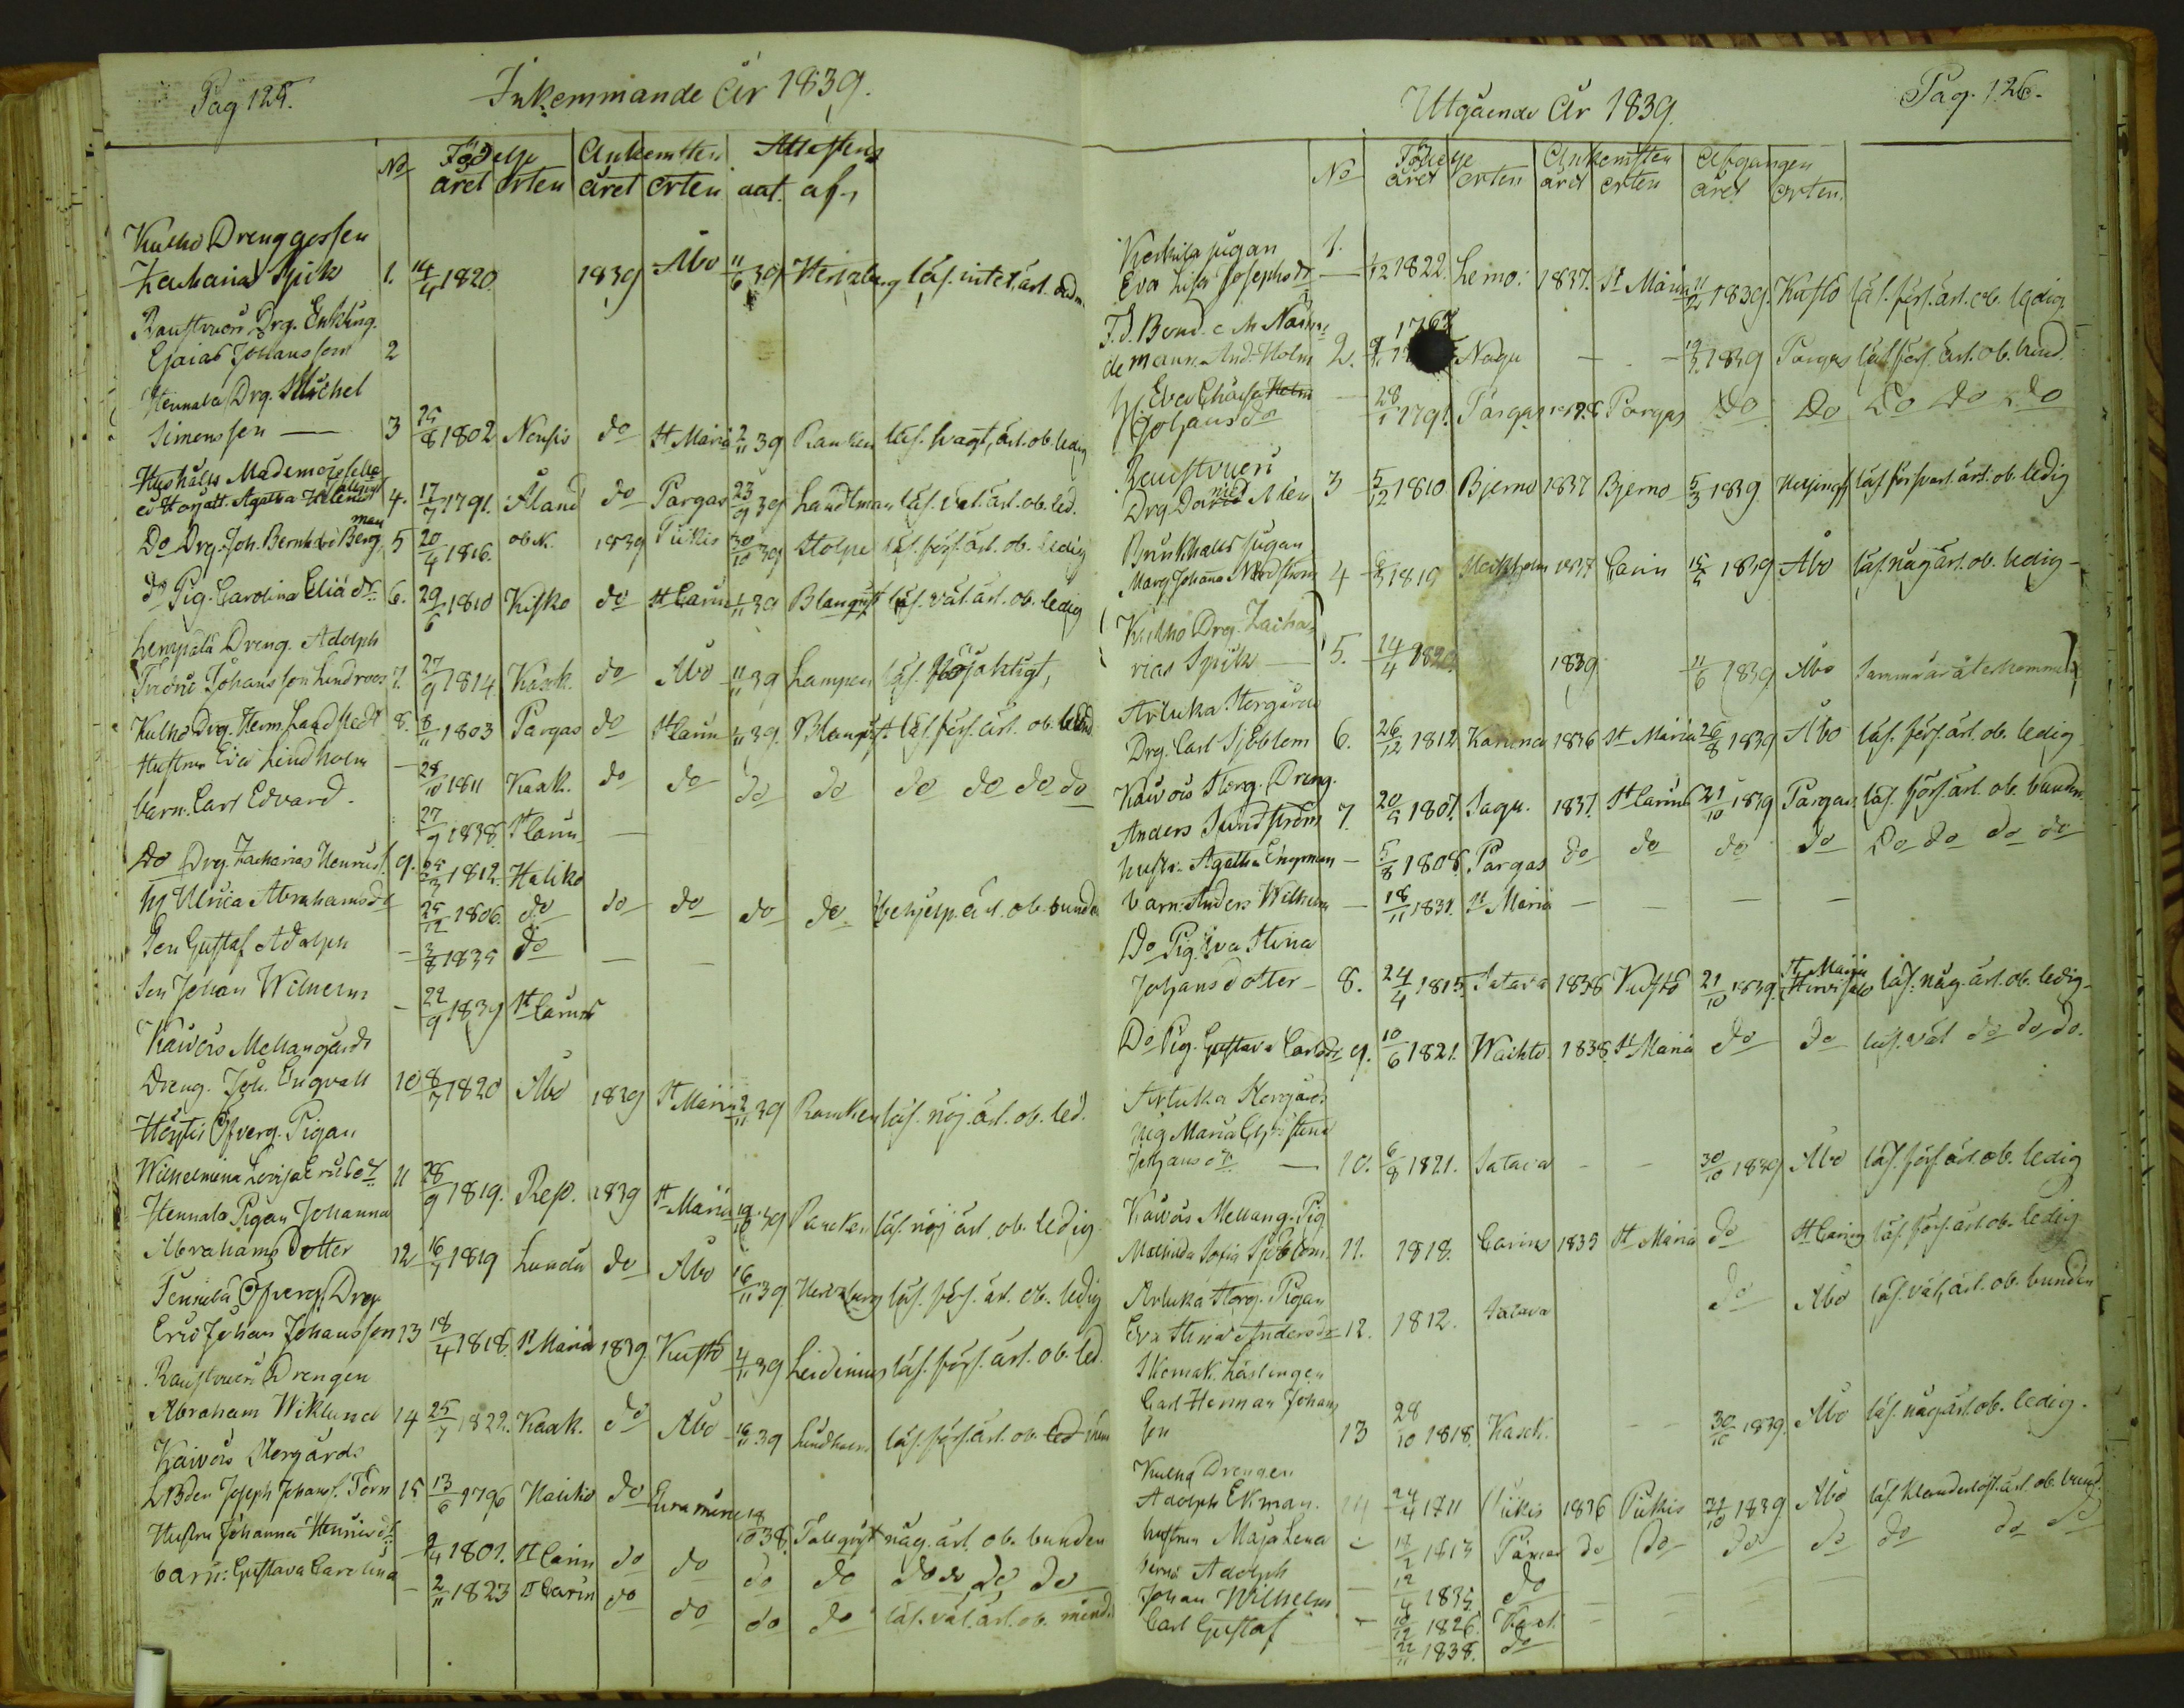 Pag 125.
Inkommande År 1839.
No Födelse Ankomsten Attestens
året orten året orten dat. af,
Kulho Drenggossen
Zacharias Spik 1. 14/4 1820 1839 Åbo 11/6 39 Hertzberg läs. int. ärl.
Raustvuori Drg. Enkling.
Esaias Johansson 2
Hennala Drg. Michel
Simonsson 3 25/8 1802 Nousis do St Mariæ 2/11 39 Rancken läs. svagt, ärl. ob. ledig
Hushålls Mademoiselle
Agatha Helenius 4. 17/7 1791. Åland do Pargas 23/9 39 Landtman läs. väl. ärl. ob. led.
Do Drg. Joh. Bernhd Bergman 5 20/4 1816. obk. 1839 Piikis 30/10 39 Stolpe läs. förs. ärl. ob. ledig
do Pig. Carolina Eliædr 6. 29/6 1810 Kisko do St Carin 1/11 39 Blanqvist läs. väl. ärl. ob. ledig
Lempälä Dreng. Adolph
Fredric Johansson Lindroos 7. 27/9 1814 Kaxk. do Åbo 11/11 39 Lampen läs. Nöjaktigt,
Kulho Drg. Herm. Landstedt 8. 8/11 1803 Pargas do St Carin 1/11 39. Blanqvist läs. förs. ärl. ob.
Hustrun Eva Lindholm — 28/10 1811 Kaxk. do do do do do do do do
barn. Carl Edvard. 27/9 1838. St Carin —
Do Drg. Zacharias Henricss. 9. 25/3 1812. Haliko
h. Ulrica Abrahamsdr 25/12 1806. do do do do do behjelp. ärl. ob. bunden
Son Gustaf Adolph — 3/8 1835 do — —
Son Johan Wilhelm — 22/9 1839 St Carins
Kaivois Mellangårds
Dreng. Joh. Engvall 10 8/7 1820 Åbo 1839 St Mariæ 2/11 39 Rancken läs. nöj. ärl. ob. led.
Höytis Öfverg. Pigan
Wilhelmina Lovisa Ericsdr 11 28/9 1819. Reso. 1839 St Mariæ 19/10 39 Rancken läs. nöj ärl. ob. ledig
Hennala Pigan Johanna
Abrahams Dotter 12 16/7 1819 Lundo do Åbo 16/11 39 Hertzberg läs. förs. ärl. ob. ledig
Tennilä Öfverg. Drg
Eric Johan Johansson 13 18/4 1818. St Mariæ 1839. Kustö 4/11 39 Leidenius läs. förs. ärl. ob. led.
Raustvuori Drengen
Abraham Wiklund 14 25/7 1822. Kaxk. do Åbo 16/11 39 Lindholm läs. förs. ärl. ob.
Kaivois Storgårds
LBden Joseph Johanss. Törn 15 13/6 1796 Nauvo do Euraminne 18/10 38. Tallqvist någ. ärl. ob. bunden
Hustru Johanna Henricsdr — 9/4 1801. St Carin do do do do do do do do
barn: Gustava Carolina — 2/11 1823 St Carin do do do do läs. väl. ärl. ob.
Utgående År 1839.
Pag. 126.
No Födelse Ankomsten Afgången
året orten året orten året orten.
Kerkila pigan 1.
Eva Lisa Josephsdr — 1822. Lemo. 1837. St Mariæ 1839. Kustö läs. förs. ärl. ob. ledig
F.d. Bond.
Holm 2. 1767 Nagu — — 1839 Pargas läs förs. ärl. ob. bund.
h. Eva Chaisa Holm
Johansdr — 28/1 1791. Pargas Pargas do do do do do
Raustvuori
Drg David Alén 3 5/12 1810 Bjerno 1837 Bjerno 5/3 1839. Helsingfs läs. försvarl. ärl. ob. ledig
Brinkhalls pigan
Marg. Johana Nordström 4 1819 1837 Carin 15/5 1839 Åbo läs. någ ärl. ob. ledig —
Kulho Dreg. Zacha
rias Spik — 5. 14/4 1820. 1839 11/6 1839 Åbo Samma år återkommit
Artukka Storgårds
Drg. Carl Sjöblom 6. 26/12 1812 Karuna 1836 St Mariæ 26/8 1839 Åbo läs. förs. ärl. ob. ledig
Kaivois Storg. Dreng.
Anders Sundström 7. 20/9 1807. Sagu. 1837. St Carins 21/10 1839 Pargas läs. förs. ärl. ob. bunden
hustr. Agatha Engman — 5/8 1808. Pargas do do do do do do do do
barn. Anders Wilhelm — 18/11 1831. St Mariæ — — — —
Do Pig. Eva Stina
Johansdotter — 8. 24/4 1815. Satava 1838 Kustö 21/10 1839. St Mariæ Hirvisalo läs. någ. ärl. ob. ledig —
Do Pig. Gustava Carlsdr 9. 10/6 1821. Waihto 1838. St Mariæ do do läs. väl do do do.
Artukka Storgårds
pig Maria Christina
Johansdr — 10. 6/8 1821. Satava — — 30/10 1839 Åbo läs. förs. ärl. ob. ledig
Kaivois Mellang. Pig
Mathilda Sofia Sjöblom 11. 1818. Carins 1835 St Mariæ do St Carins läs. förs. ärl. ob. ledig
Artukka Storg. Pigan
Eva Stina Andersdr 12. 1812. Satava do Åbo läs. väl, ärl. ob. bunden
Skomak. Lärlingen
Carl Herman Johans
son 13 28/10 1818. Kaxk. — — 30/10 1839. Åbo läs. någ ärl. ob. ledig.
Kulho Drengen
Adolph Ekman. 14 24/4 1711 Piikis 1836 Piikis 31/10 1839 Åbo läs. klanderlöst. ärl. ob. bund.
hustrun Maja Lena — 1813 Pämar do do do do do do do
barn: Adolph — 12/4 1835. do
Johan Wilhelm — 10/12 1826. —
Carl Gustaf — 22/11 1838. do